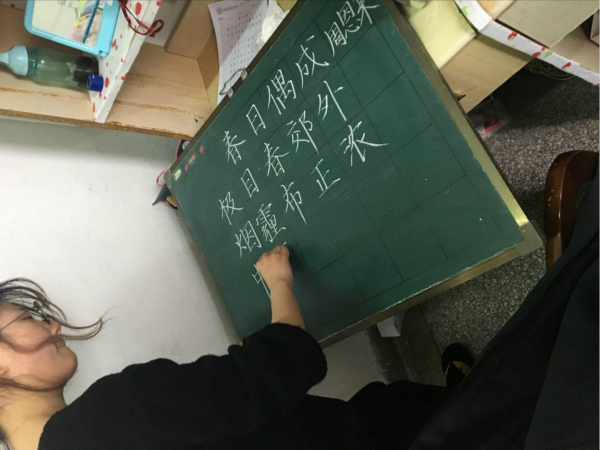 春日偶成 周恩来
极目春郊外
烟霾布正